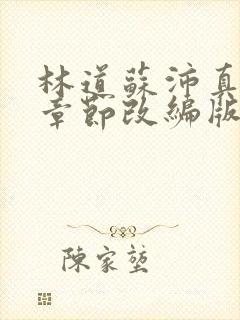 林道蘇沛真
章節改編版
陳家墪